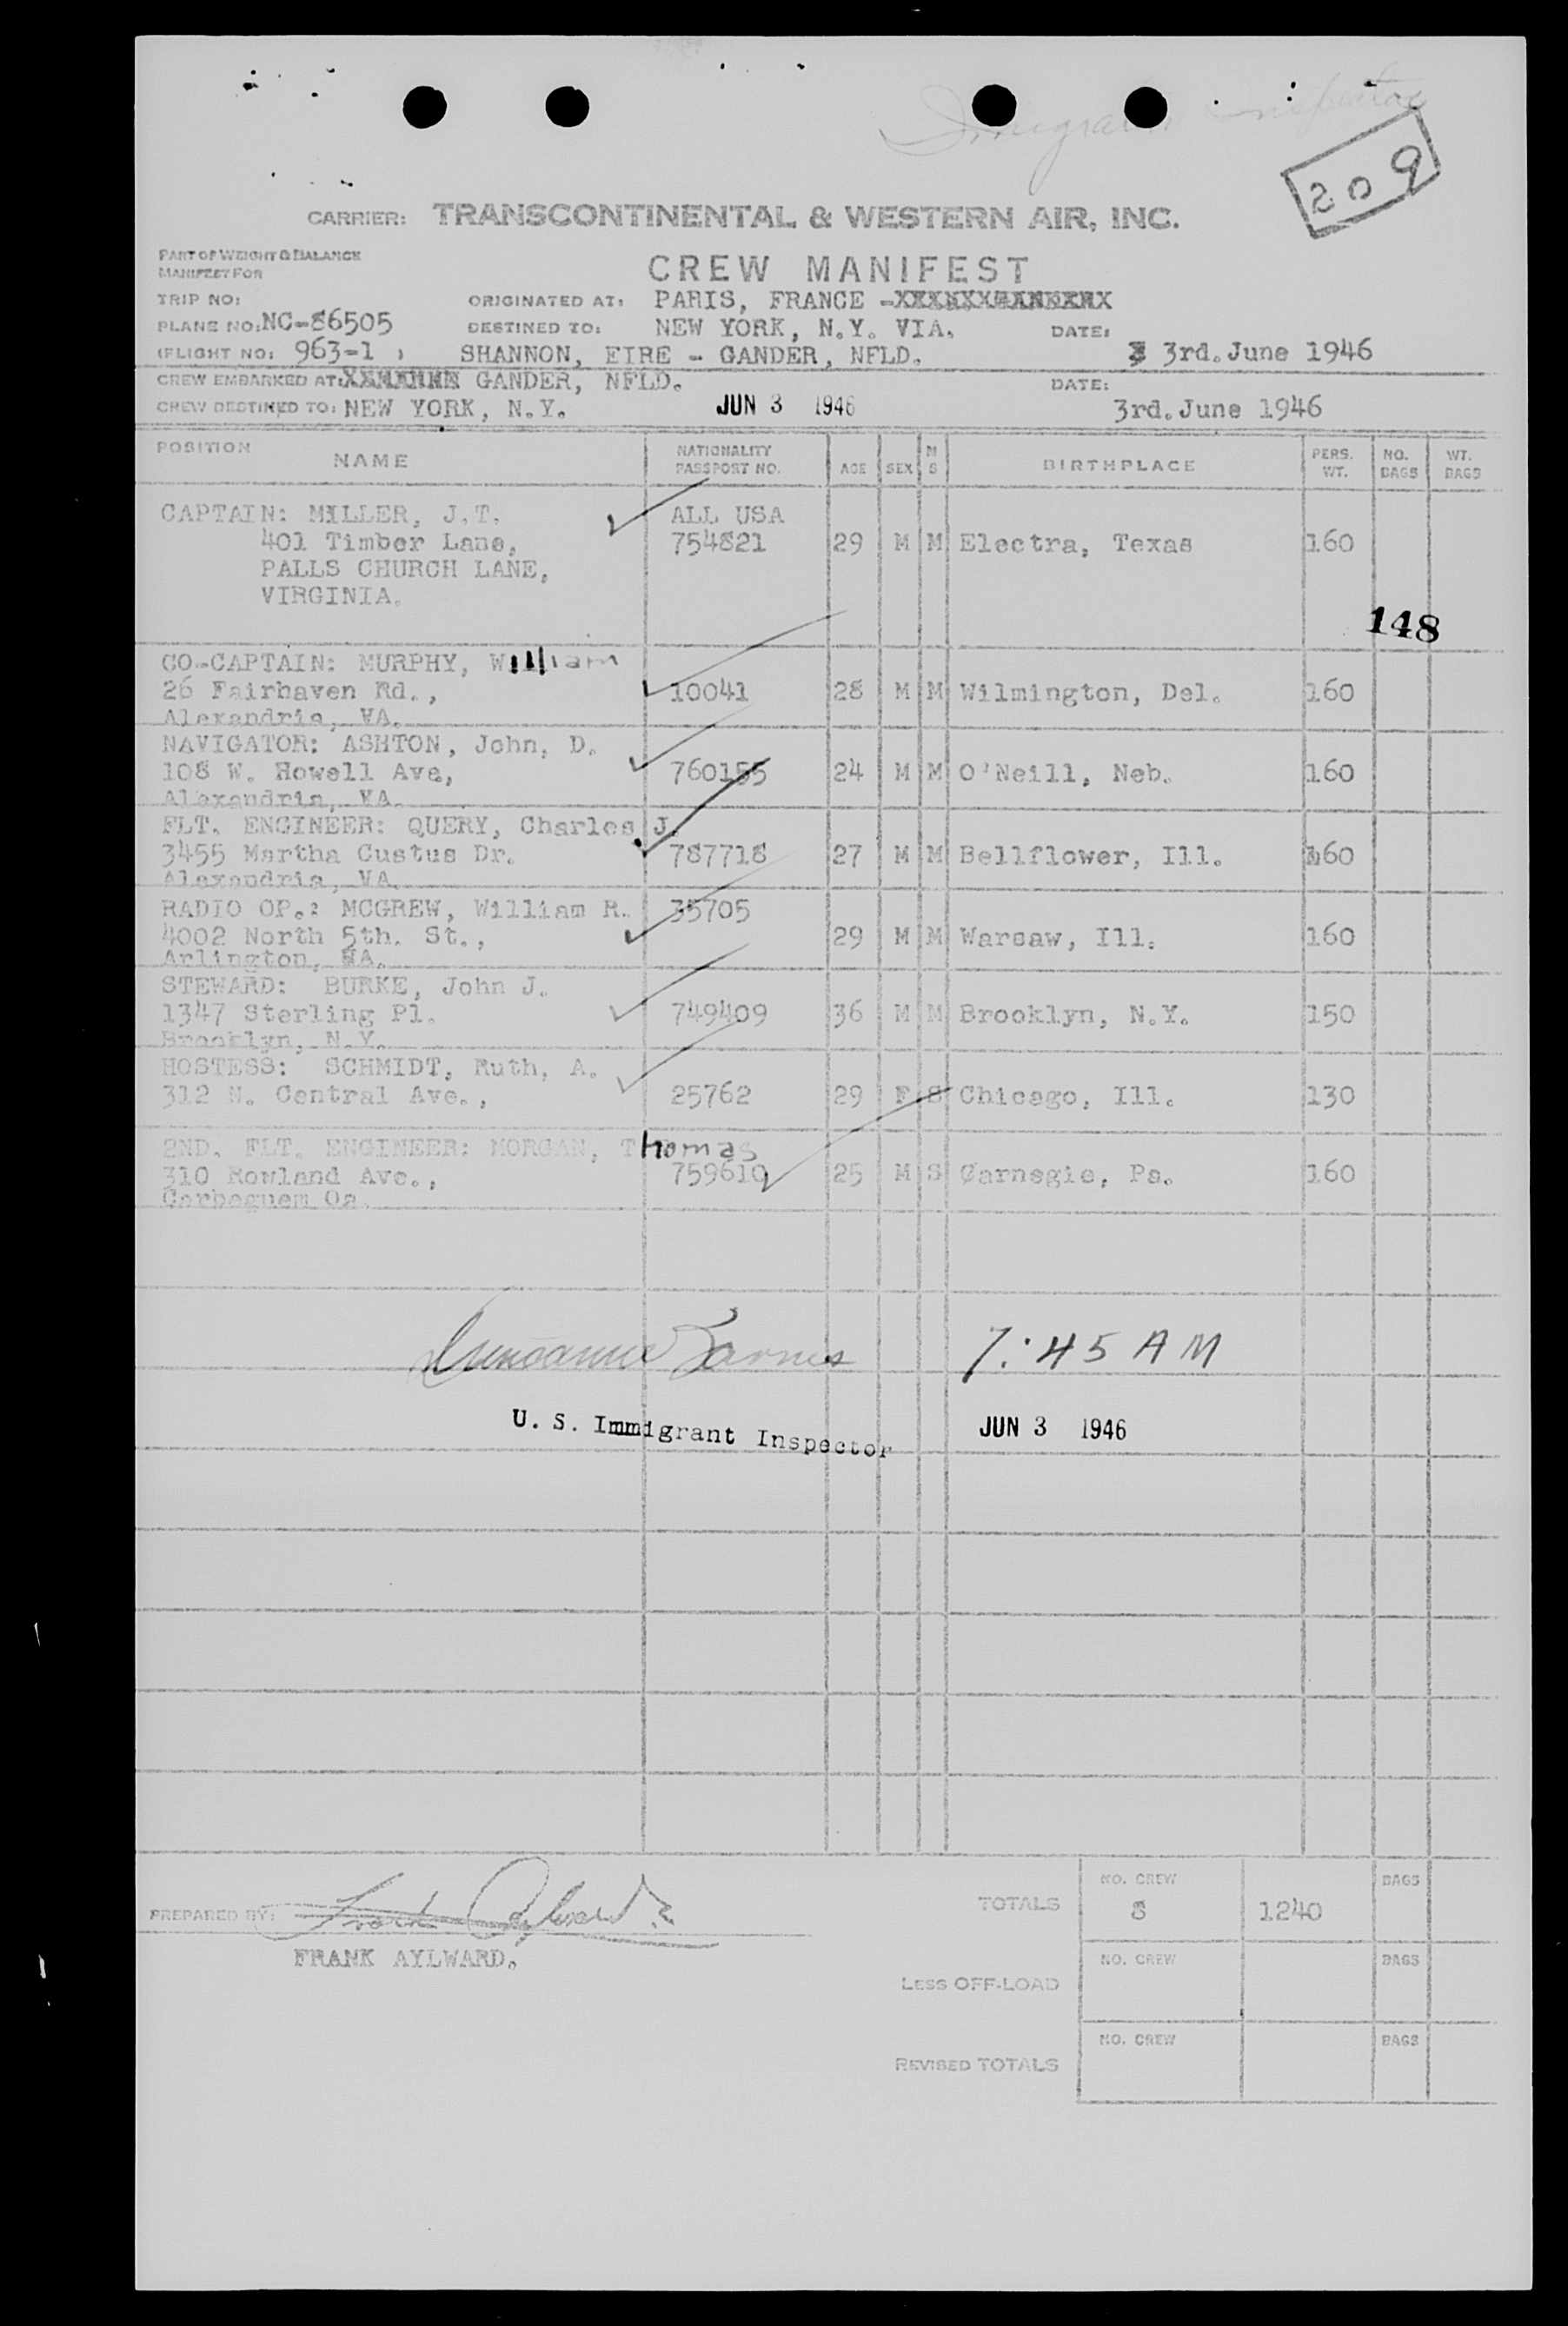 Immigrant Inspector
209
CARRIER: TRANSCONTINENTAL & WESTERN AIR, INC.
PART OF WEIGHT & BALANCE
MANIFEST FOR
CREW MANIFEST
TRIP NO: ORIGINATED AT: PARIS, FRANCE -
PLANE NO: NC-86505 DESTINED TO: NEW YORK, N.Y. VIA. DATE:
(FLIGHT NO: 963-1 ) SHANNON, EIRE - GANDER, NFLD. 3rd. June 1946
CREW EMBARKED AT: GANDER, NFLD. DATE:
CREW DESTINED TO: NEW YORK, N.Y. JUN 3 1946 3rd. June 1946
POSITION NAME NATIONALITY PASSPORT NO. AGE SEX M S BIRTHPLACE PERS. WT. NO. BAGS WT. BAGS
CAPTAIN: MILLER, J.T. ALL USA
401 Timber Lane, 754821 29 M M Electra, Texas 160
PALLS CHURCH LANE,
VIRGINIA.
148
CO-CAPTAIN: MURPHY, William
26 Fairhaven Rd., 10041 28 M M Wilmington, Del. 160
Alexandria, VA.
NAVIGATOR: ASHTON, John, D.
108 W. Howell Ave, 760155 24 M M O'Neill, Neb. 160
Alexandria, VA.
FLT. ENGINEER: QUERY, Charles J.
3455 Martha Custus Dr. 787718 27 M M Bellflower, Ill. 160
Alexandria, VA.
RADIO OP.: MCGREW, William R. 35705
4002 North 5th. St., 29 M M Warsaw, Ill. 160
Arlington, VA.
STEWARD: BURKE, John J.
1347 Sterling Pl. 749409 36 M M Brooklyn, N.Y. 150
Brooklyn, N.Y.
HOSTESS: SCHMIDT, Ruth, A.
312 N. Central Ave., 25762 29 F S Chicago, Ill. 130
2ND. FLT. ENGINEER: MORGAN, Thomas
310 Rowland Ave., 759610 25 M S Carnegie, Pa. 160
7:45 AM
U. S. Immigrant Inspector JUN 3 1946
PREPARED BY: Frank Aylward
FRANK AYLWARD.
TOTALS NO. CREW 8 1240 BAGS
LESS OFF-LOAD NO. CREW BAGS
REVISED TOTALS NO. CREW BAGS